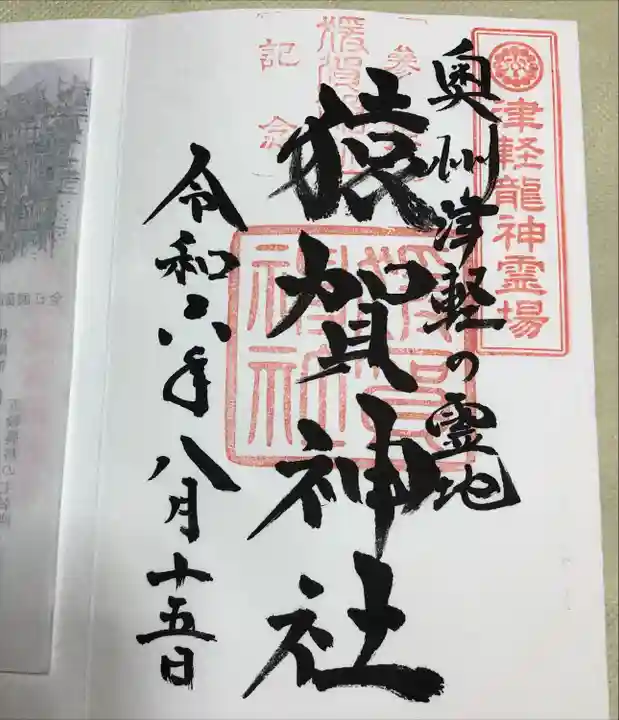 津軽龍神霊場
奥州津軽の霊地
猿賀神社
猿賀神社
記念
令和六年八月十五日